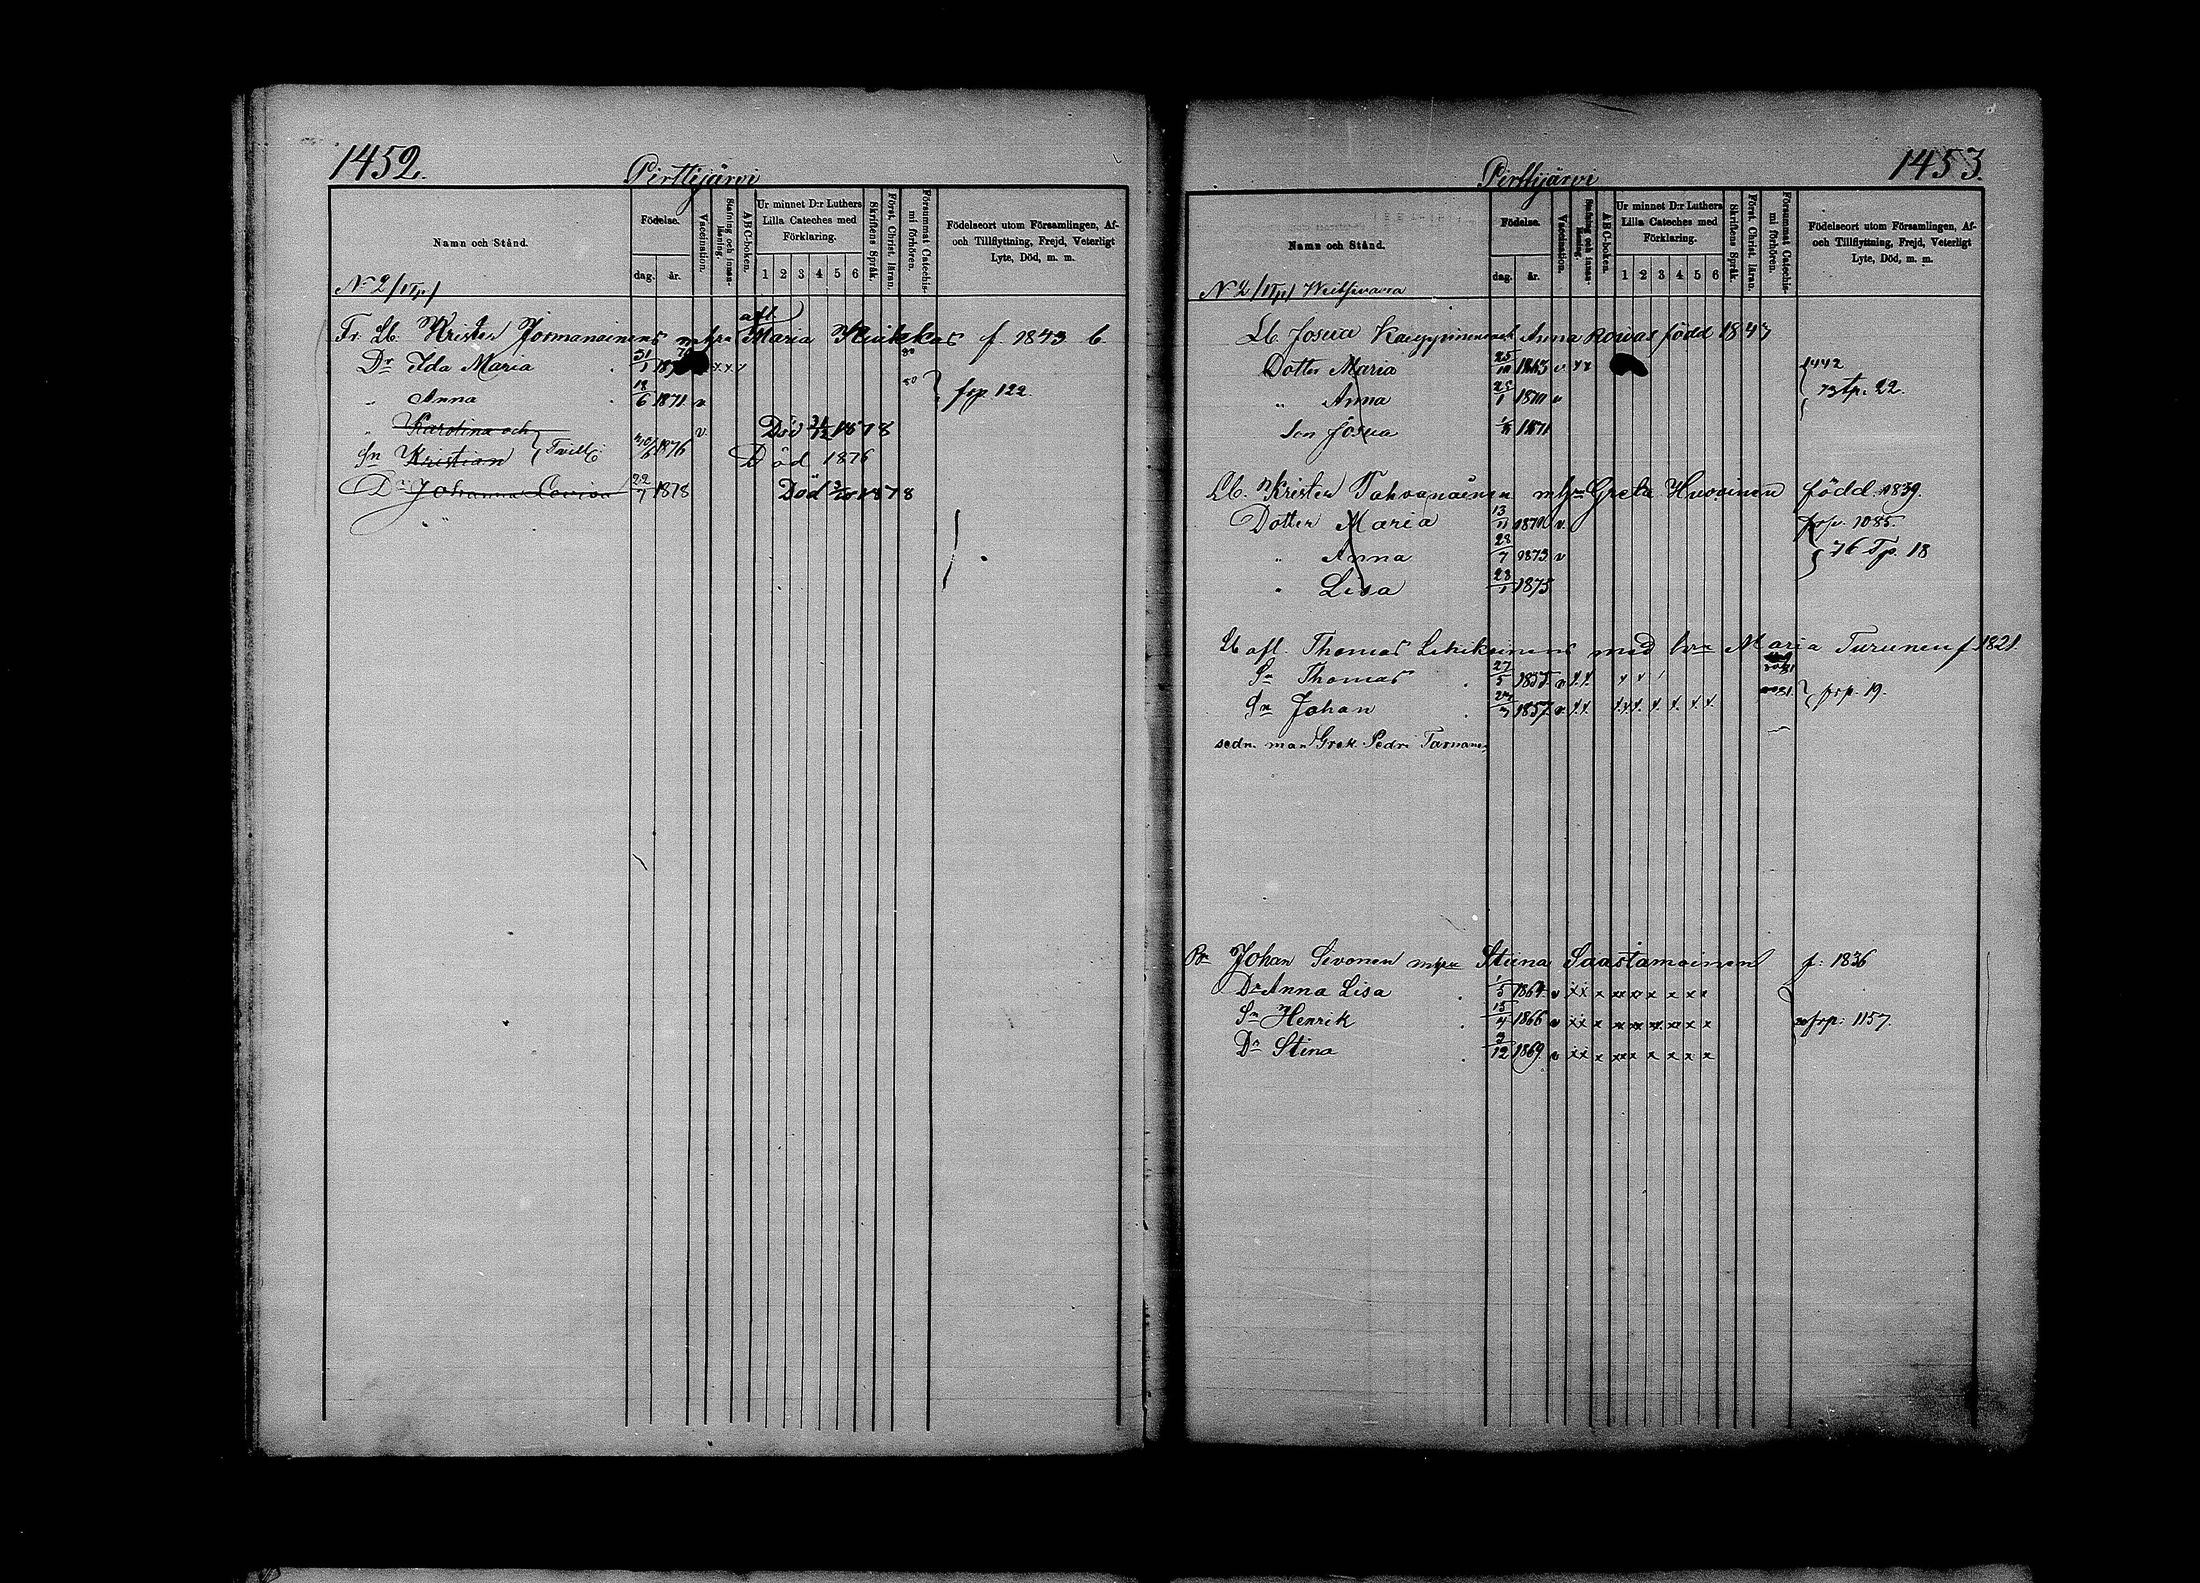 1452.
Pirttijärvi
Namn och Stånd.
Födelse.
dag. år.
Vaccination.
Stafning och innan-läsning.
ABC-boken.
Ur minnet D:r Luthers Lilla Cateches med Förklaring.
1 2 3 4 5 6
Skriftens Språk.
Först. Christ. läran.
Försummat Catechis-mi förhören.
Födelseort utom Församlingen, Af- och Tillflyttning, Frejd, Veterligt Lyte, Död, m. m.
N 2
afl.
Fr. Lb. Krister Jormanainens m hu Maria Kuikkas f. 1843 b.
Dr Ilda Maria 31/1 x x 80
" Anna 18/6 1871 v 80 } frp 122.
" Karolina och v Död 1878
Sn Kristian } Tvill: 1876 Död 1876
Dr Johanna Lovisa 22/7 1878 Död 1878
1453.
Pirttijärvi
Namn och Stånd.
Födelse.
dag. år.
Vaccination.
Stafning och innan-läsning.
ABC-boken.
Ur minnet D:r Luthers Lilla Cateches med Förklaring.
1 2 3 4 5 6
Skriftens Språk.
Först. Christ. läran.
Försummat Catechis-mi förhören.
Födelseort utom Församlingen, Af- och Tillflyttning, Frejd, Veterligt Lyte, Död, m. m.
N 2
Lb. Josua Anna född 1847
Dotter Maria 1865 v x x 1442
" Anna 25/1 1870 v } 73 tp. 22.
Son Josua 1871
Lb. Krister Tahvanainen m hu Greta Huovinen född. 1839.
Dotter Maria 13/11 1870 v. frp. 1085.
" Anna 28/7 1873 v } 76 Tp. 18
" Lisa 28/1 1875
Lb afl. Thomas Lehikoinens med hu Maria Turunen f 1821.
Sn Thomas 27/5 1855. v x.x.
Sn Johan 1857. v. x.x. x.x.x. x. x. x. x. 81. } frp. 19.
sedn. man Grek. Pedri
Bn Johan Sivonen m hu Stiina Saastamoinen f: 1836
Dr Anna Lisa 1/5 1864. v x x x x x x x x x
Sn Henrik 15/4 1866 v x x x x x x x x x } frp: 1157.
Dr Stina 3/12 1869. v x x x x x x x x x